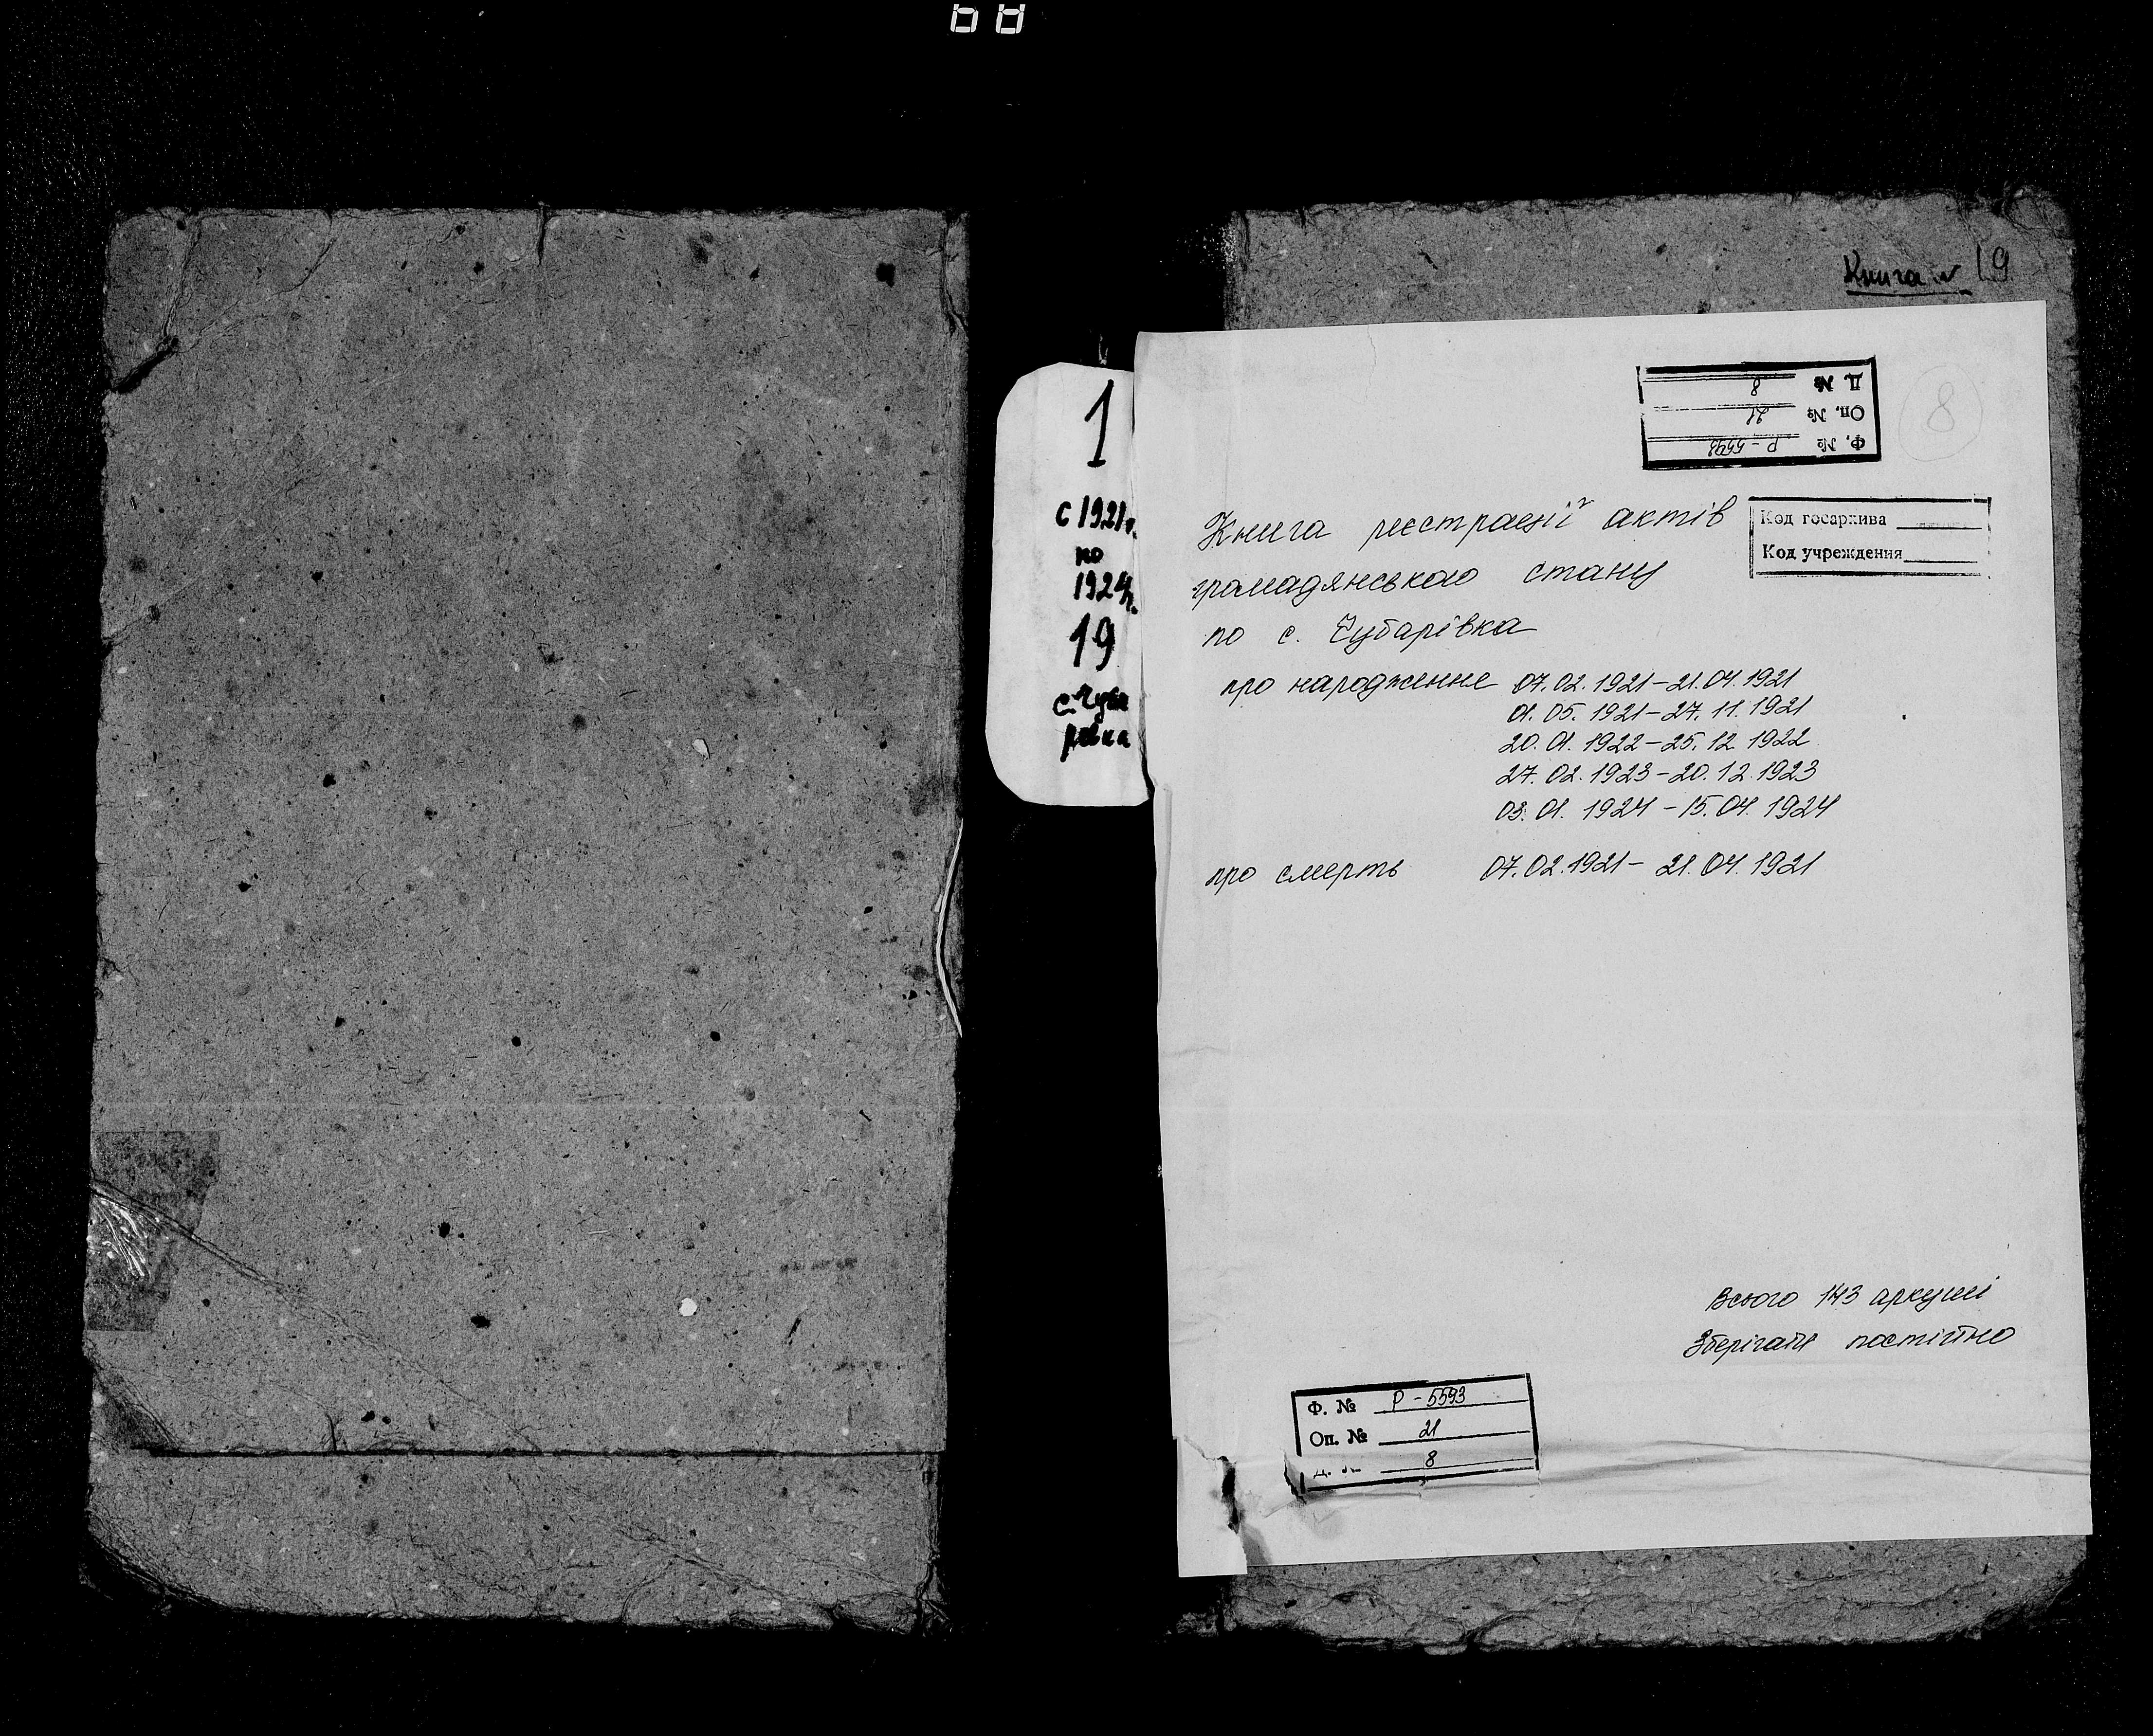 Книга № 19
1
с 1921г.
по
1924г.
19
с. Чуба
ривка
Ф. № Р-5593
Оп. № 21
Д. № 8
8
Код госархива
Код учреждения
Книга реєстрації актів
громадянського стану
по с. Чубарівка
про народження 07.02.1921-21.04.1921
01.05.1921-27.11.1921
20.01.1922-25.12.1922
27.02.1923-20.12.1923
03.01.1924-15.04.1924
про смерть 07.02.1921-21.04.1921
Всього 143 аркуші
Зберігати постійно
Ф. № Р-5593
Оп. № 21
Д. № 8